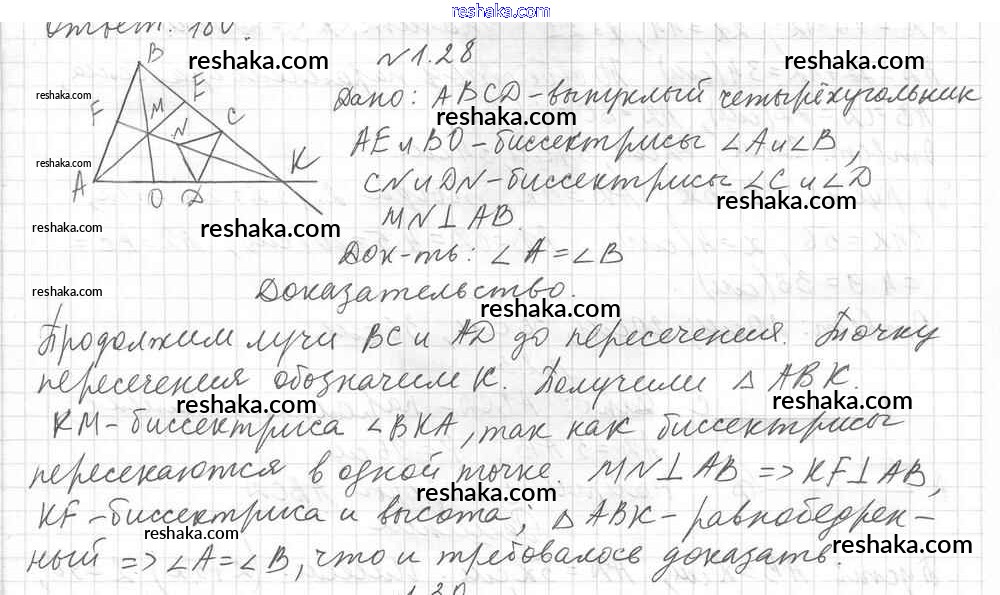 reshaka.com
Ответ: 180.
№1.28
Дано: ABCD-выпуклый четырёхугольник
AE и BO-биссектрисы ∠A и ∠B,
CN и DN-биссектрисы ∠C и ∠D
MN⊥AB.
Док-ть: ∠A=∠B
Доказательство.
Продолжим лучи BC и AD до пересечения. Точку
пересечения обозначим K. Получили △ABK.
KM-биссектриса ∠BKA, так как биссектрисы
пересекаются в одной точке. MN⊥AB => KF⊥AB,
KF-биссектриса и высота; △ABK-равнобедрен-
ный => ∠A=∠B, что и требовалось доказать.
B
E
M
F
N
C
K
A
O
D
reshaka.com
reshaka.com
reshaka.com
reshaka.com
reshaka.com
reshaka.com
reshaka.com
reshaka.com
reshaka.com
reshaka.com
reshaka.com
reshaka.com
reshaka.com
reshaka.com
reshaka.com
reshaka.com